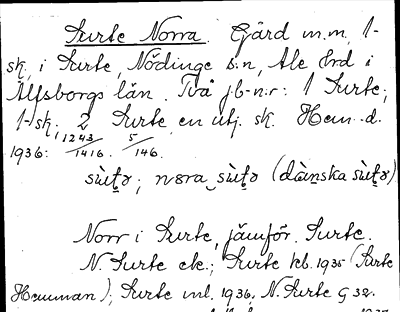 Surte Norra. Gård m.m. 1-
sk. i Surte, Nödinge s:n, Ale hrd i
Älfsborgs län. Två jb-n:r: 1 Surte;
1-sk; 2 Surte en utj. sk. Hem. d.
1936: 1243/1416. 5/146.
Norr i Surte, jämför Surte.
N. Surte ek.; Surte kb. 1935 (Surte
Hemman); Surte ml. 1936, N. Surte G 32.